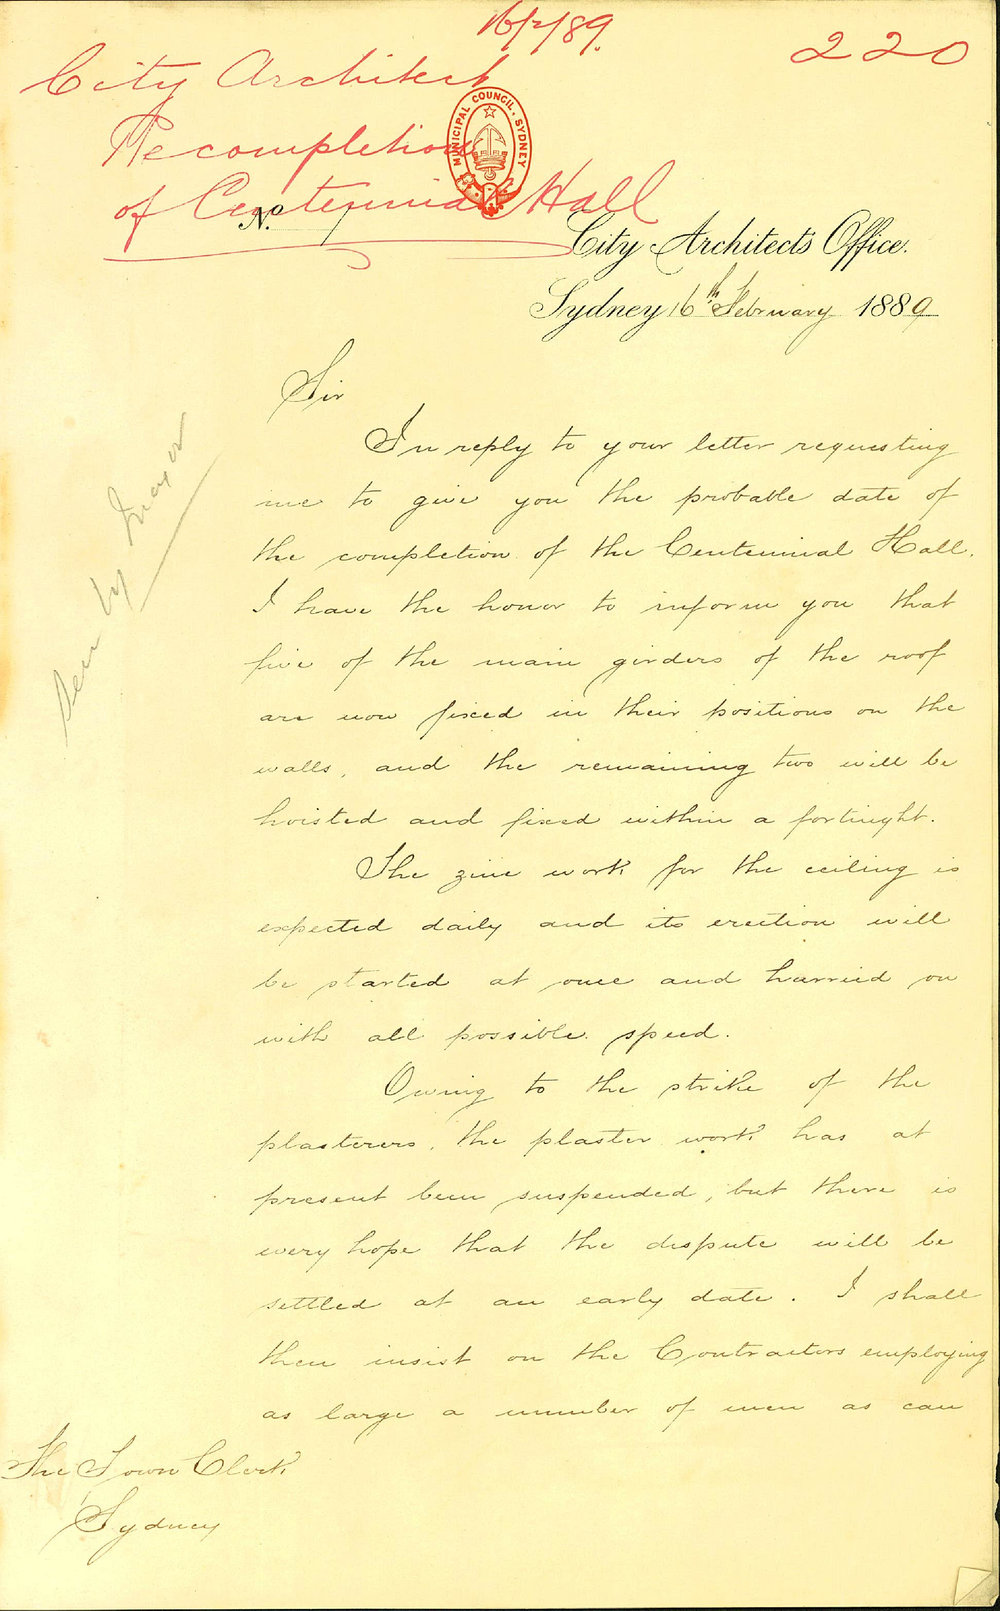 16/2/89.
220
City Architect
Re completion
of Centennial Hall
MUNICIPAL COUNCIL, SYDNEY
No.
City Architect's Office.
Sydney 16th February 1889
Sir
In reply to your letter requesting
me to give you the probable date of
the completion of the Centennial Hall.
I have the honor to inform you that
five of the main girders of the roof
are now fixed in their positions on the
walls, and the remaining two will be
hoisted and fixed within a fortnight.
The zinc work for the ceiling is
expected daily and its erection will
be started at once and hurried on
with all possible speed.
Owing to the strike of the
plasterers, the plaster work has at
present been suspended, but there is
every hope that the dispute will be
settled at an early date. I shall
then insist on the Contractors employing
as large a number of men as can
The Town Clerk
Sydney
Seen by Mayor